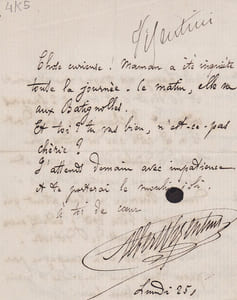 4K5
Chose curieuse : Maman a été inquiète
toute la journée. Le matin, elle va
aux Batignolles.
Et toi ? tu vas bien, n'est-ce-pas
chérie ?
J'attends demain avec impatience
et te porterai le
à toi de cœur
Lundi 25,